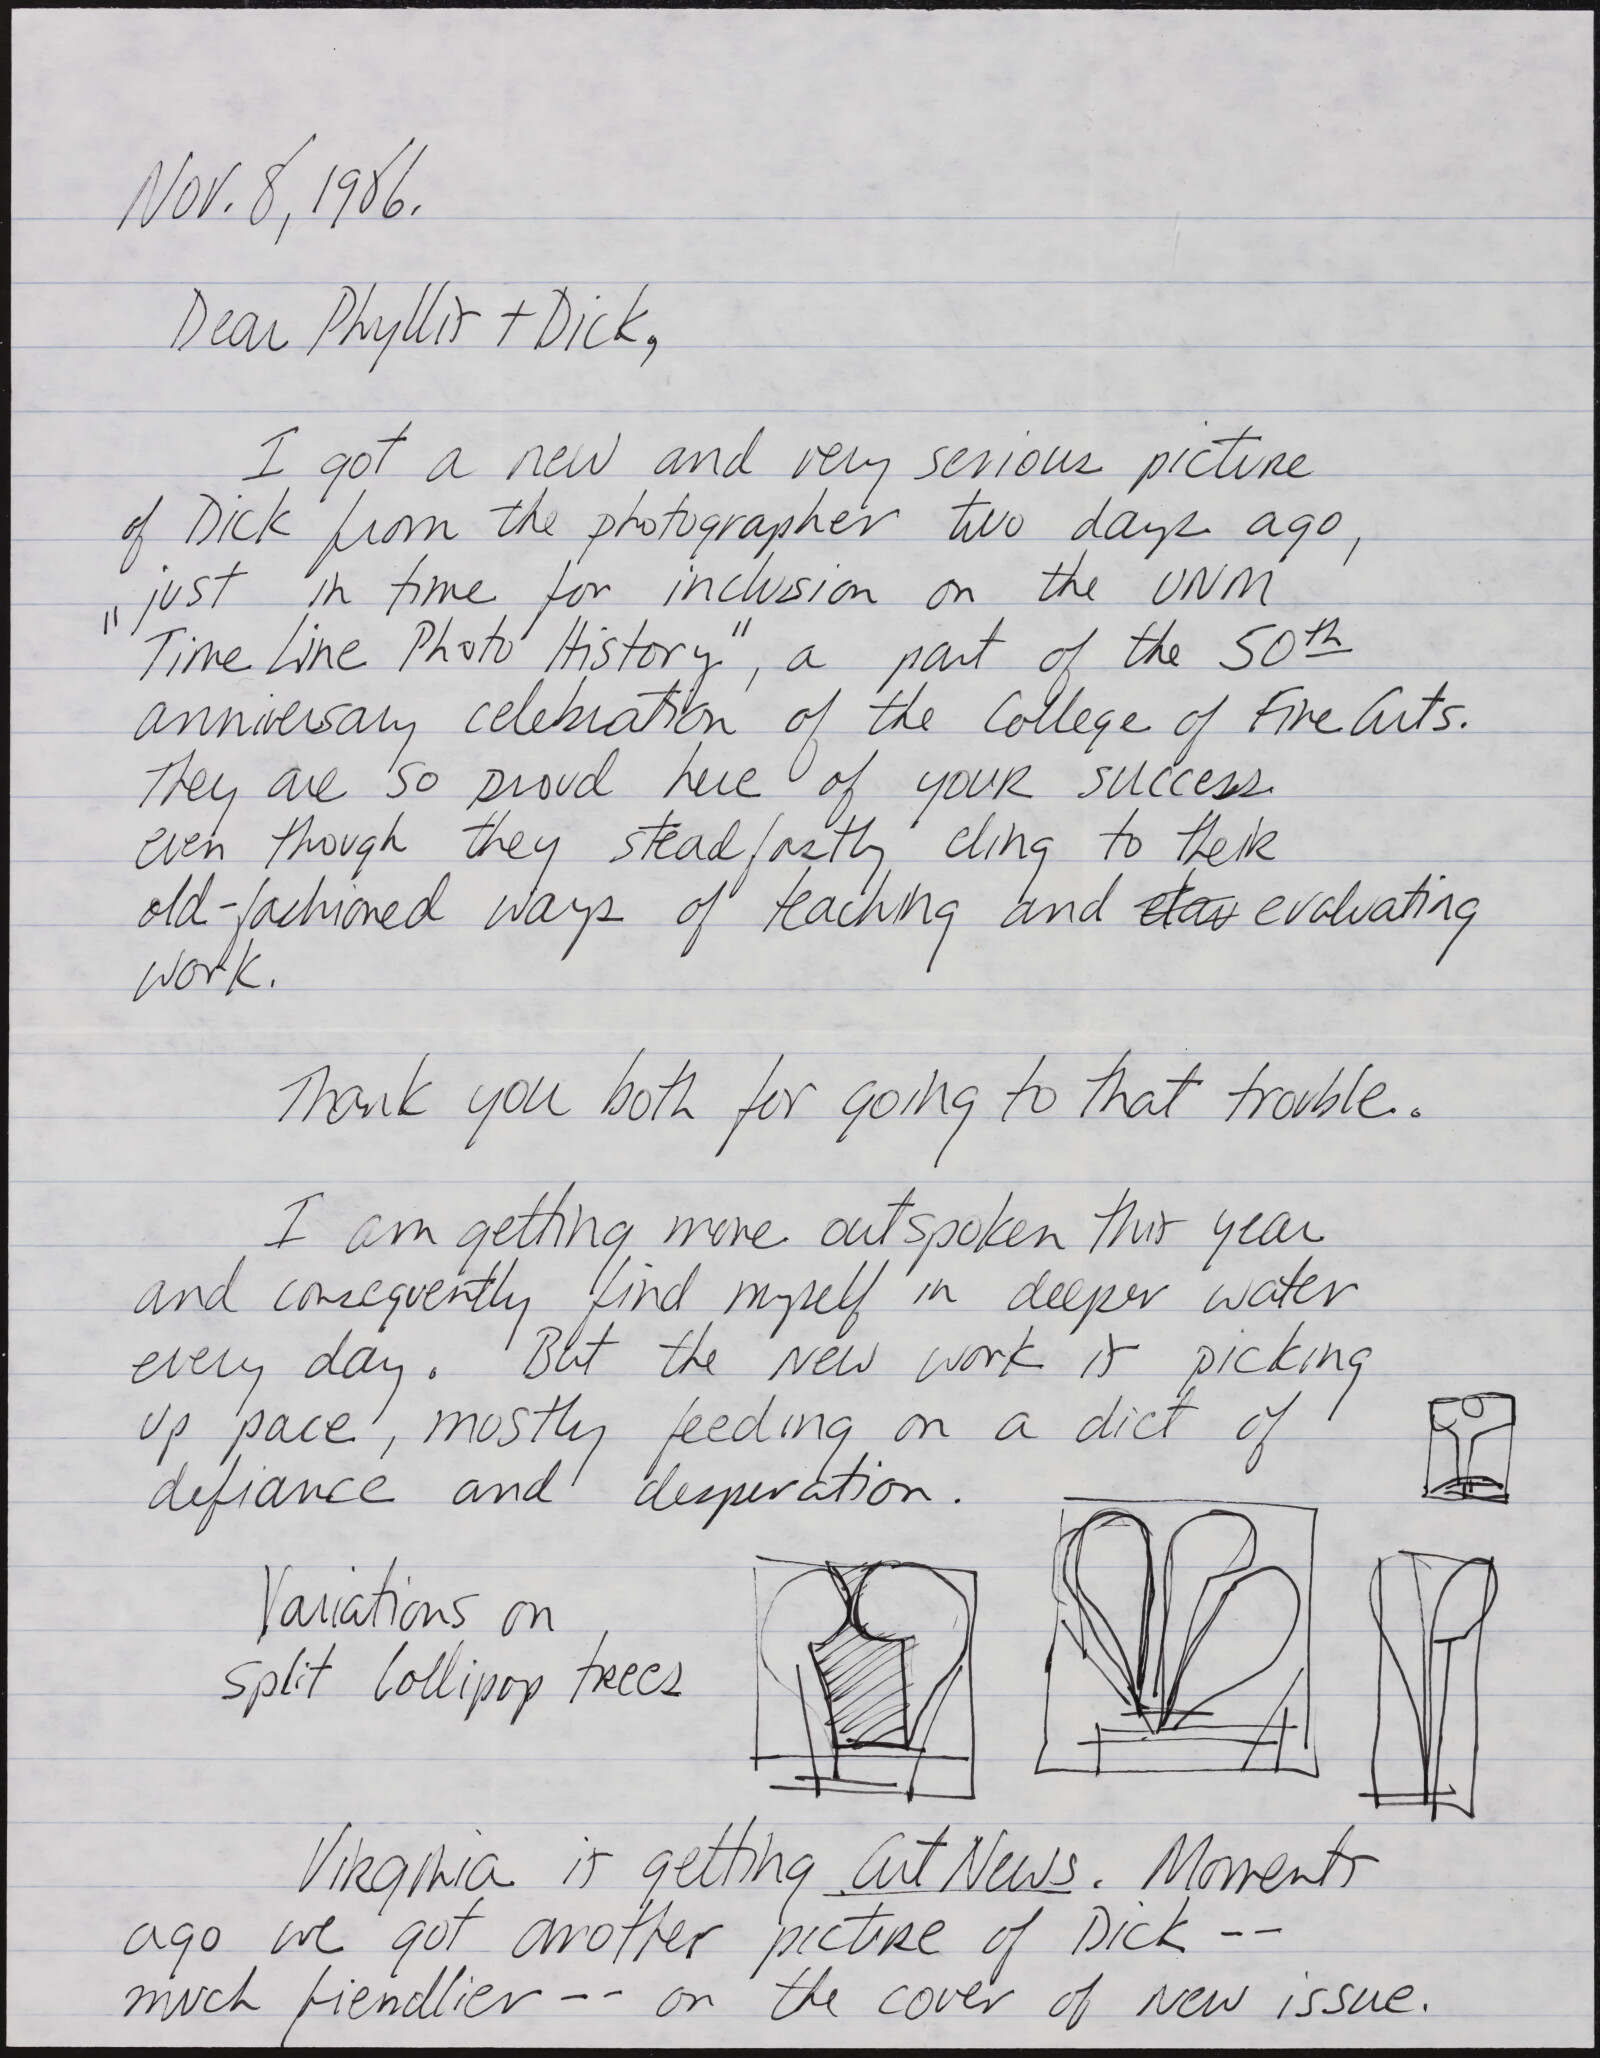 Nov. 8, 1986.
Dear Phyllis + Dick,
I got a new and very serious picture
of Dick from the photographer two days ago,
just in time for inclusion on the UNM
"Time Line Photo History", a part of the 50th
anniversary celebration of the College of Fine Arts.
They are so proud here of your success
even though they steadfastly cling to their
old-fashioned ways of teaching and evaluating
work.
Thank you both for going to that trouble.
I am getting more outspoken this year
and consequently find myself in deeper water
every day. But the new work is picking
up pace, mostly feeding on a diet of
defiance and desperation.
Variations on
split lollipop trees
Virginia is getting Art News. Moments
ago we got another picture of Dick --
much fiendlier -- on the cover of new issue.